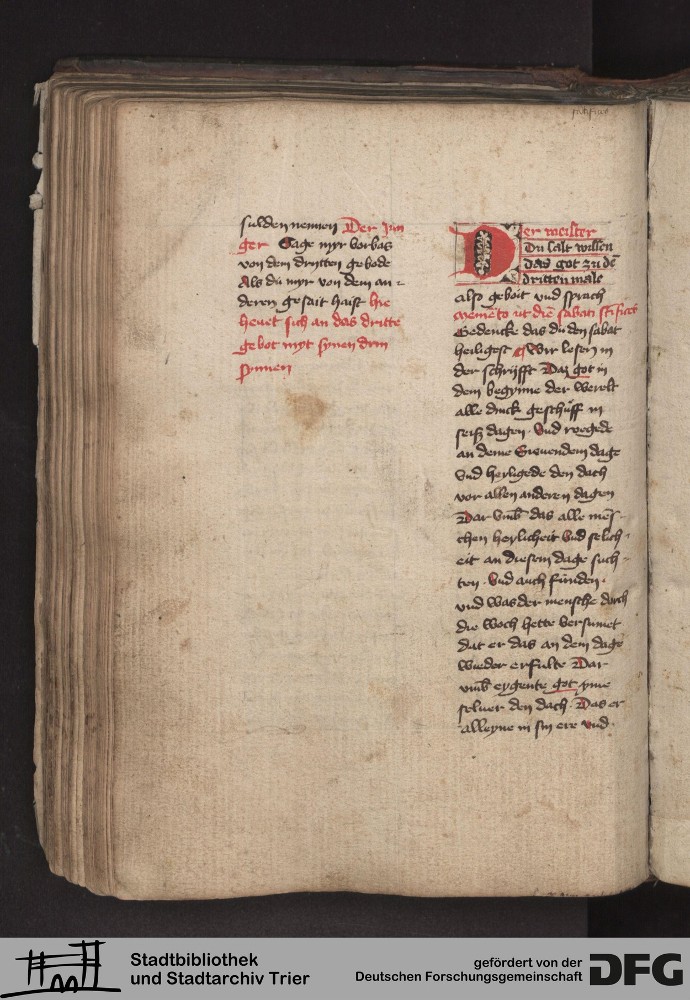 sulden nennen Der jun
ger Sage myr vorbas
von dem drytten gebode
Als du myr von dem an-
deren gesait haist hie
hevet sich an das dritte
gebot myt synen drin
synnen
Der meister
Du salt wissen
das got zu dē
dritten male
also geboit vnd sprach
memēto ut die sabati scifices
Gedencke das du den sabat
heiligest Wir lesen in
der schryfft Daz got in
dem begynne der werelt
alle dinck geschuff in
seiß dagen. Vnd rwegede
an deme Sieuendem dage
Vnd heyligede den dach
vor allen anderen dagen
Dar vmb das alle mēs-
chen heylicheit Vnd selich-
eit an diesem dage such-
ten. Vnd auch fünden.
vnd was der mensche durch
die woch hette versumet
dat er das an dem dage
wieder erfulte Dar
vmb eygente got yme
seluer den dach. Das er
alleyne in sin ere vnd.
Stadtbibliothek
und Stadtarchiv Trier
gefördert von der
Deutschen Forschungsgemeinschaft
DFG